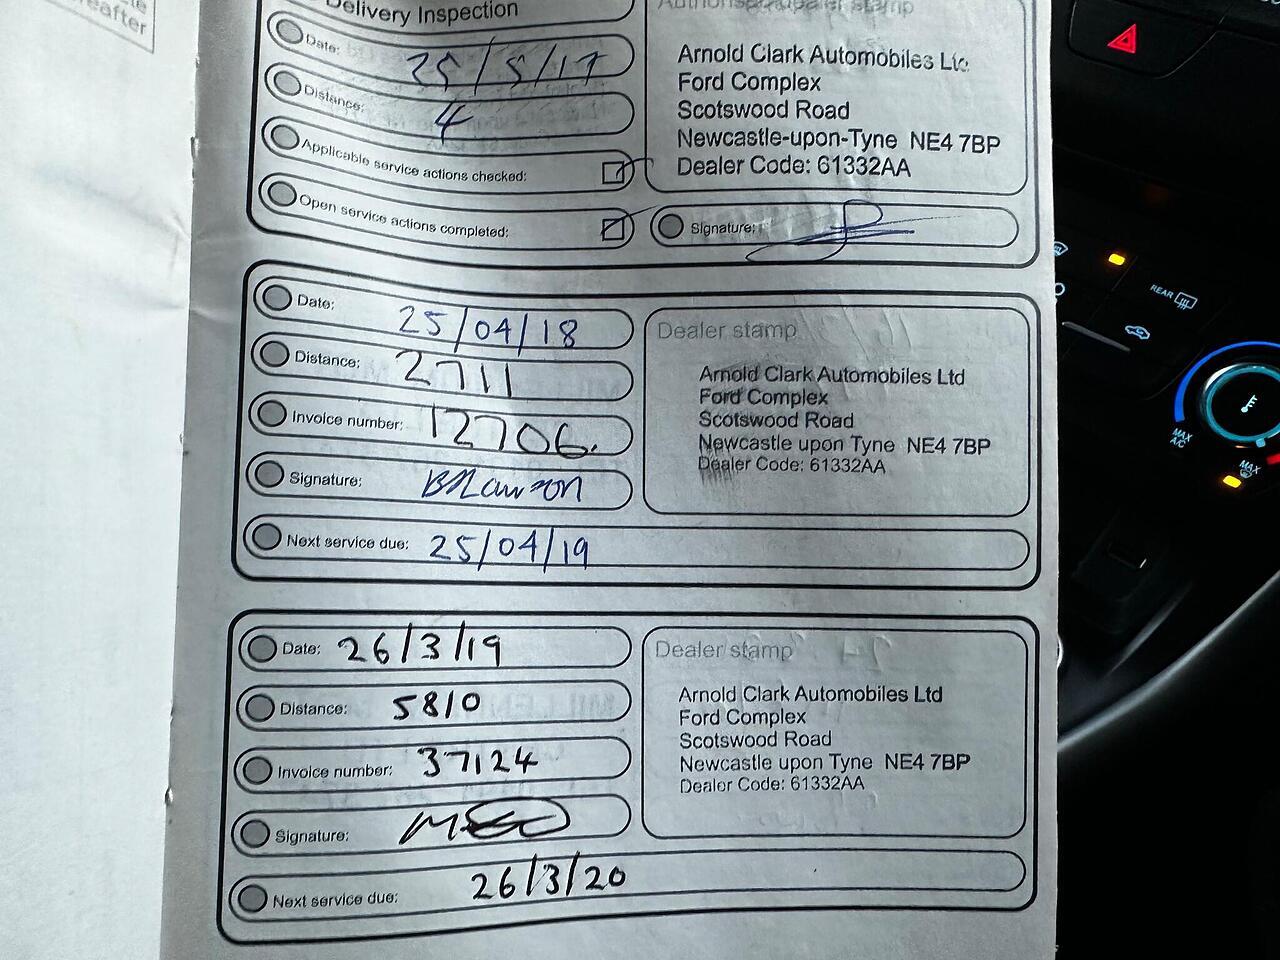 Delivery Inspection
Date: 25/5/17
Distance: 4
Applicable service actions checked:
Open service actions completed:
Authorised dealer stamp
Arnold Clark Automobiles Ltd
Ford Complex
Scotswood Road
Newcastle-upon-Tyne NE4 7BP
Dealer Code: 61332AA
Signature:
Date: 25/04/18
Distance: 2711
Invoice number: 12706.
Signature:
Next service due: 25/04/19
Dealer stamp
Arnold Clark Automobiles Ltd
Ford Complex
Scotswood Road
Newcastle upon Tyne NE4 7BP
Dealer Code: 61332AA
Date: 26/3/19
Distance: 5810
Invoice number: 37124
Signature:
Next service due: 26/3/20
Dealer stamp
Arnold Clark Automobiles Ltd
Ford Complex
Scotswood Road
Newcastle upon Tyne NE4 7BP
Dealer Code: 61332AA
REAR
MAX
A/C
MAX